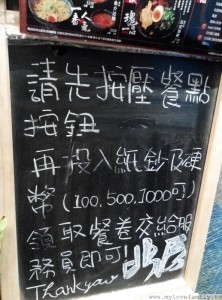 請先按壓餐點
按鈕
再投入紙鈔及硬
幣(100,500,1000可)
領取餐卷交給服
務員即可
Thank you
www.mylovefamily.tw